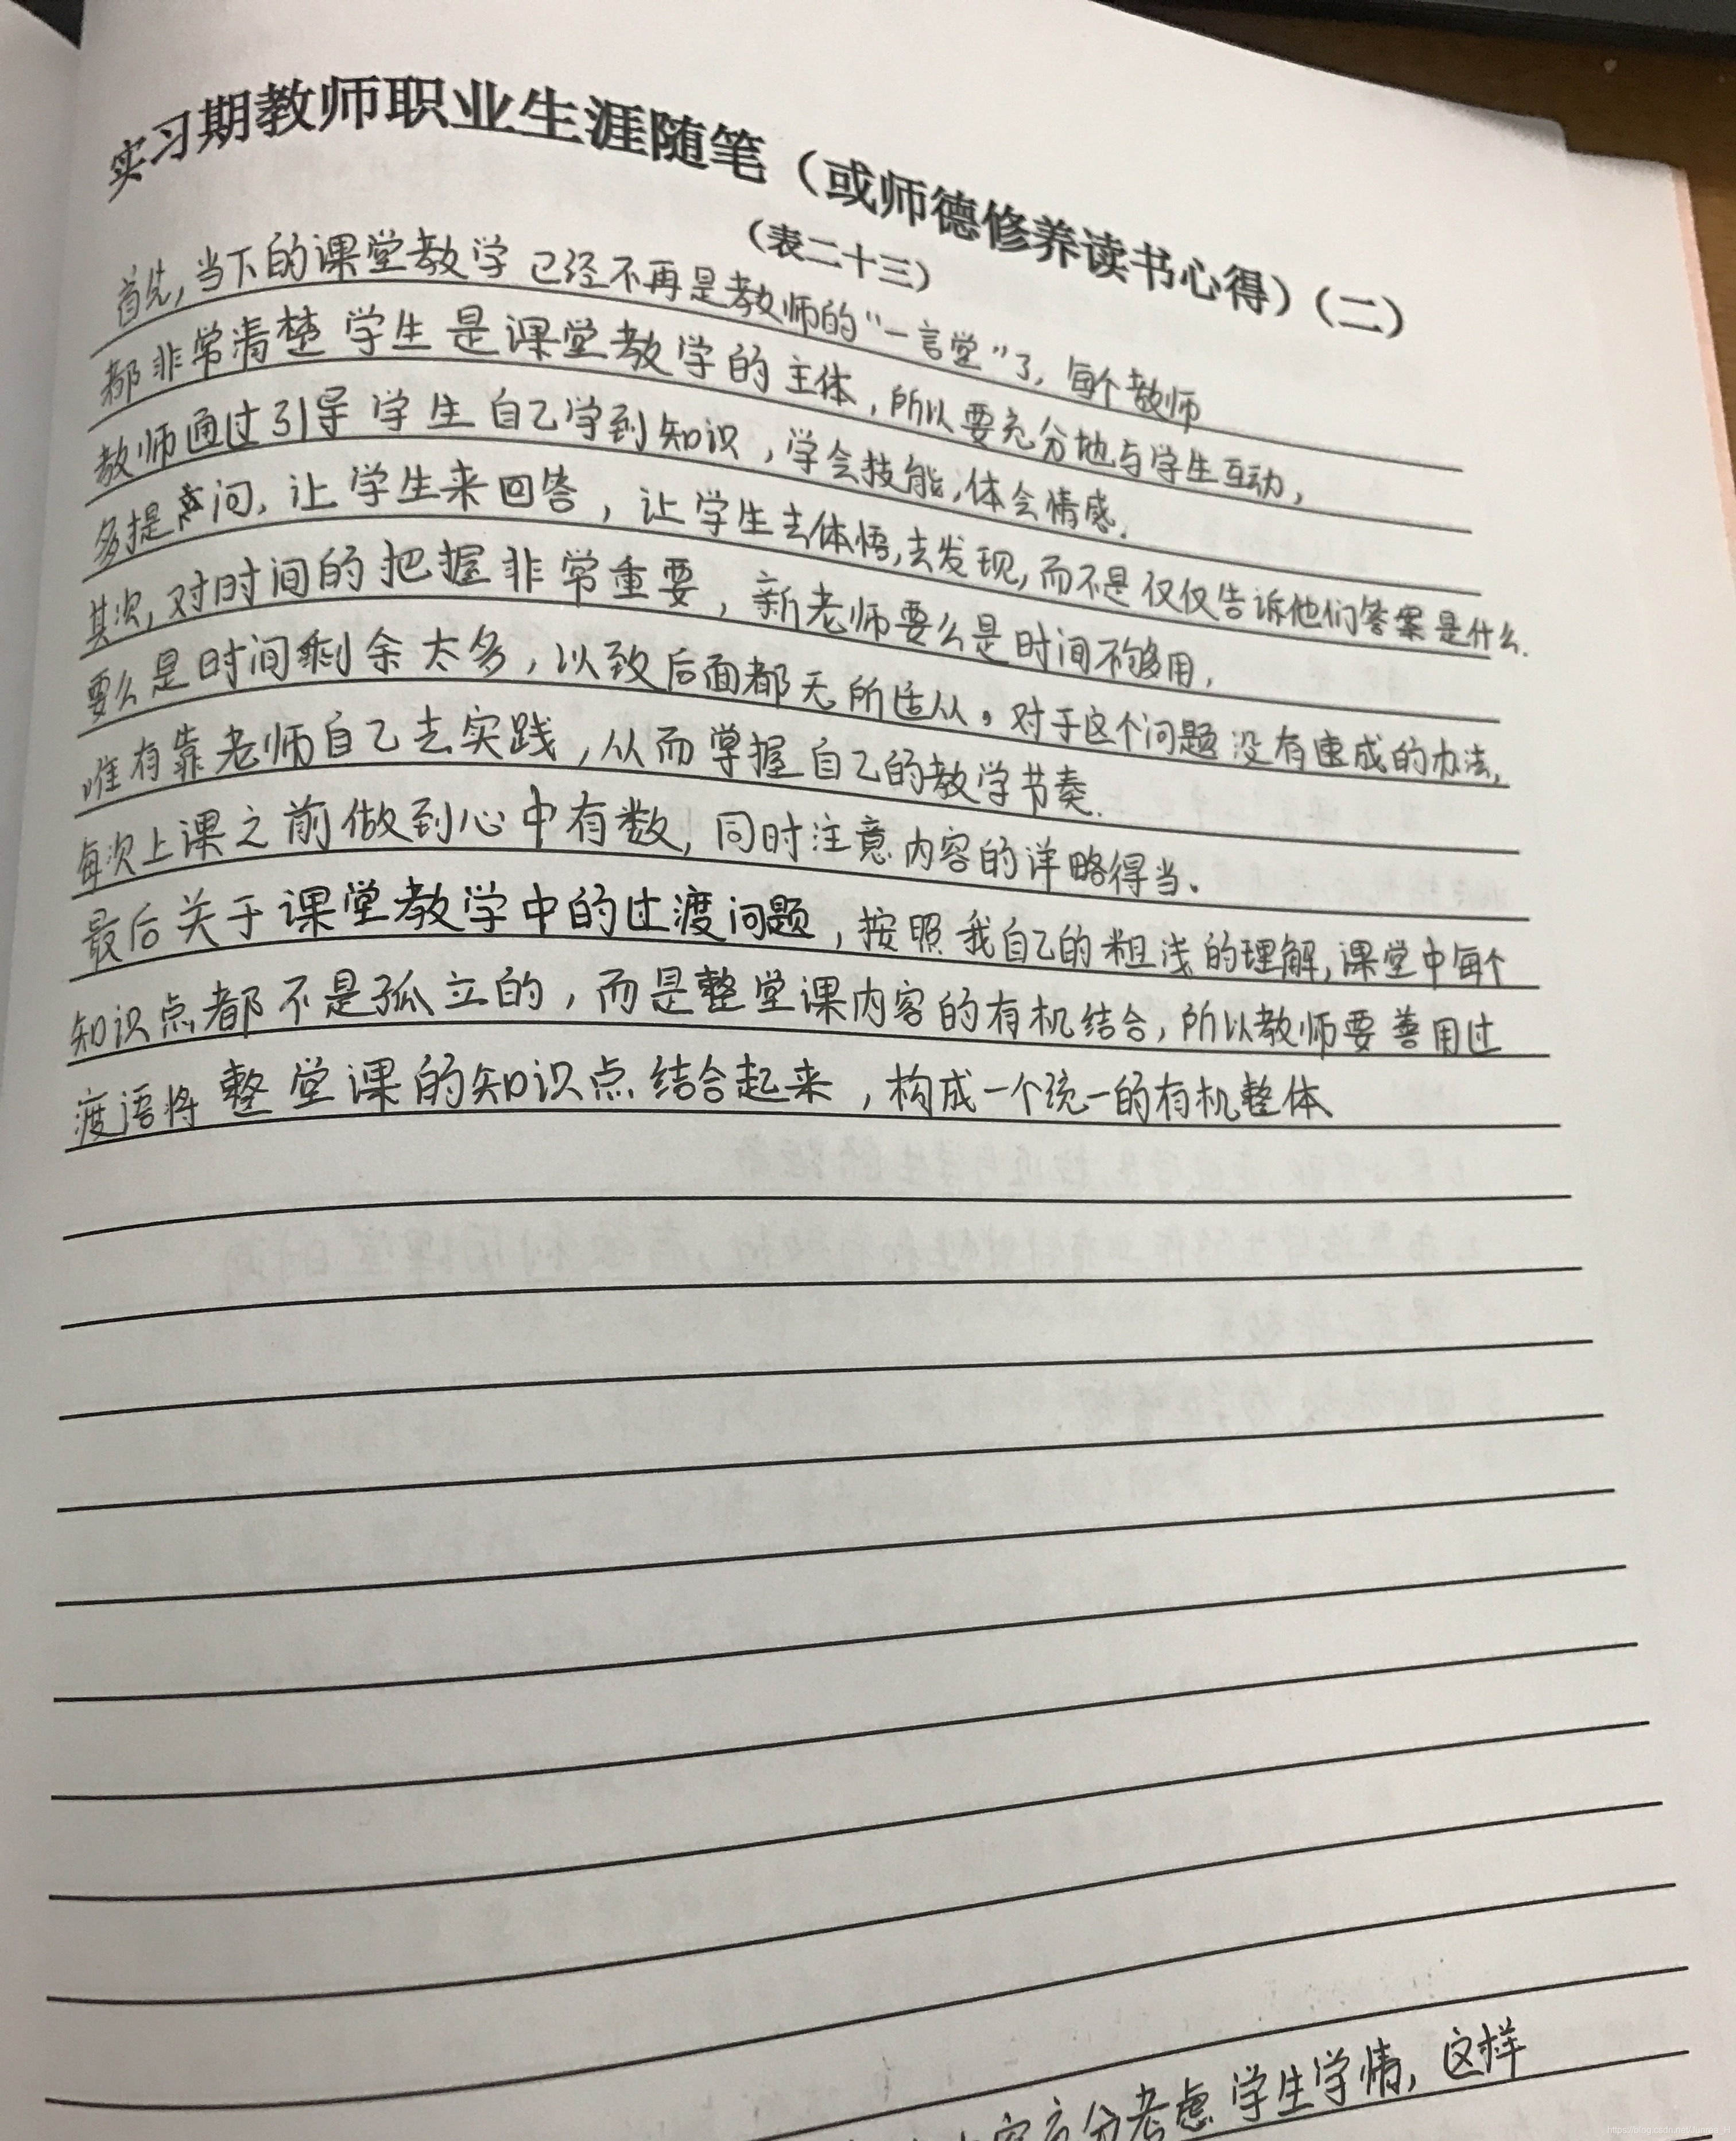 实习期教师职业生涯随笔（或师德修养读书心得）（二）
（表二十三）
首先,当下的课堂教学已经不再是教师的“一言堂”了,每个教师
都非常清楚学生是课堂教学的主体,所以要充分地与学生互动,
教师通过引导学生自己学到知识,学会技能,体会情感.
多提问,让学生来回答,让学生去体悟,去发现,而不是仅仅告诉他们答案是什么.
其次,对时间的把握非常重要,新老师要么是时间不够用,
要么是时间剩余太多,以致后面都无所适从。对于这个问题没有速成的办法,
唯有靠老师自己去实践,从而掌握自己的教学节奏.
每次上课之前做到心中有数,同时注意内容的详略得当.
最后关于课堂教学中的过渡问题,按照我自己的粗浅的理解,课堂中每个
知识点都不是孤立的,而是整堂课内容的有机结合,所以教师要善用过
渡语将整堂课的知识点结合起来,构成一个统一的有机整体
充分考虑学生学情,这样